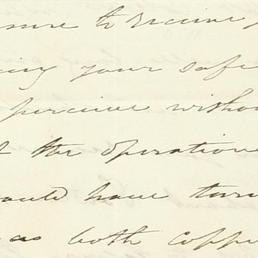 sure to receive
your safe
perceive witho
the operation
ould have turn
as both coppe